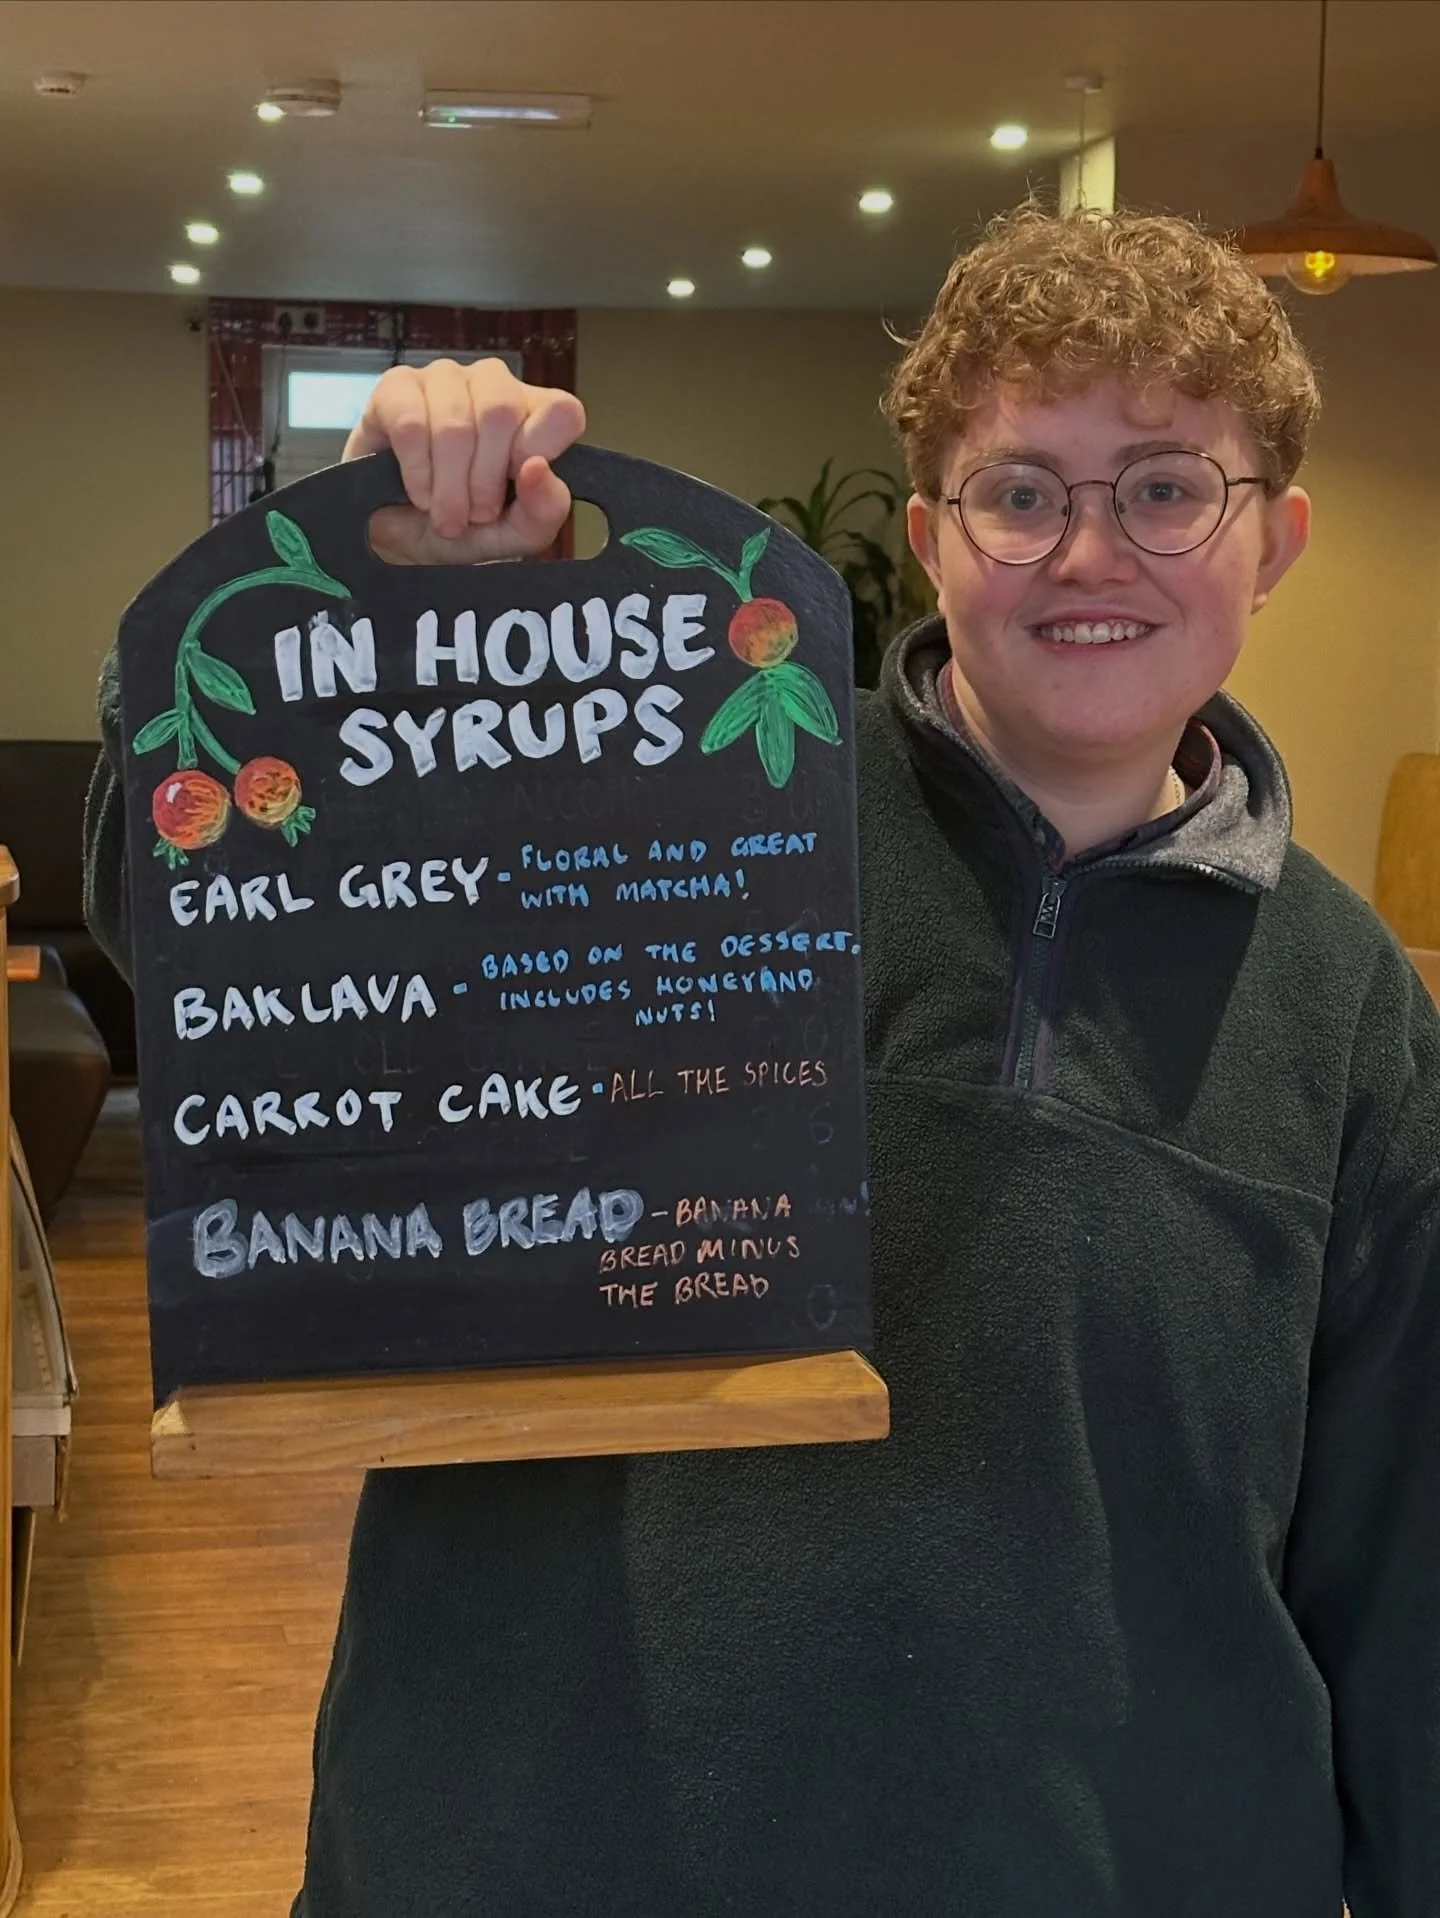 IN HOUSE
SYRUPS
EARL GREY - FLORAL AND GREAT
WITH MATCHA!
BAKLAVA - BASED ON THE DESSERT.
INCLUDES HONEY AND
NUTS!
CARROT CAKE - ALL THE SPICES
BANANA BREAD - BANANA
BREAD MINUS
THE BREAD